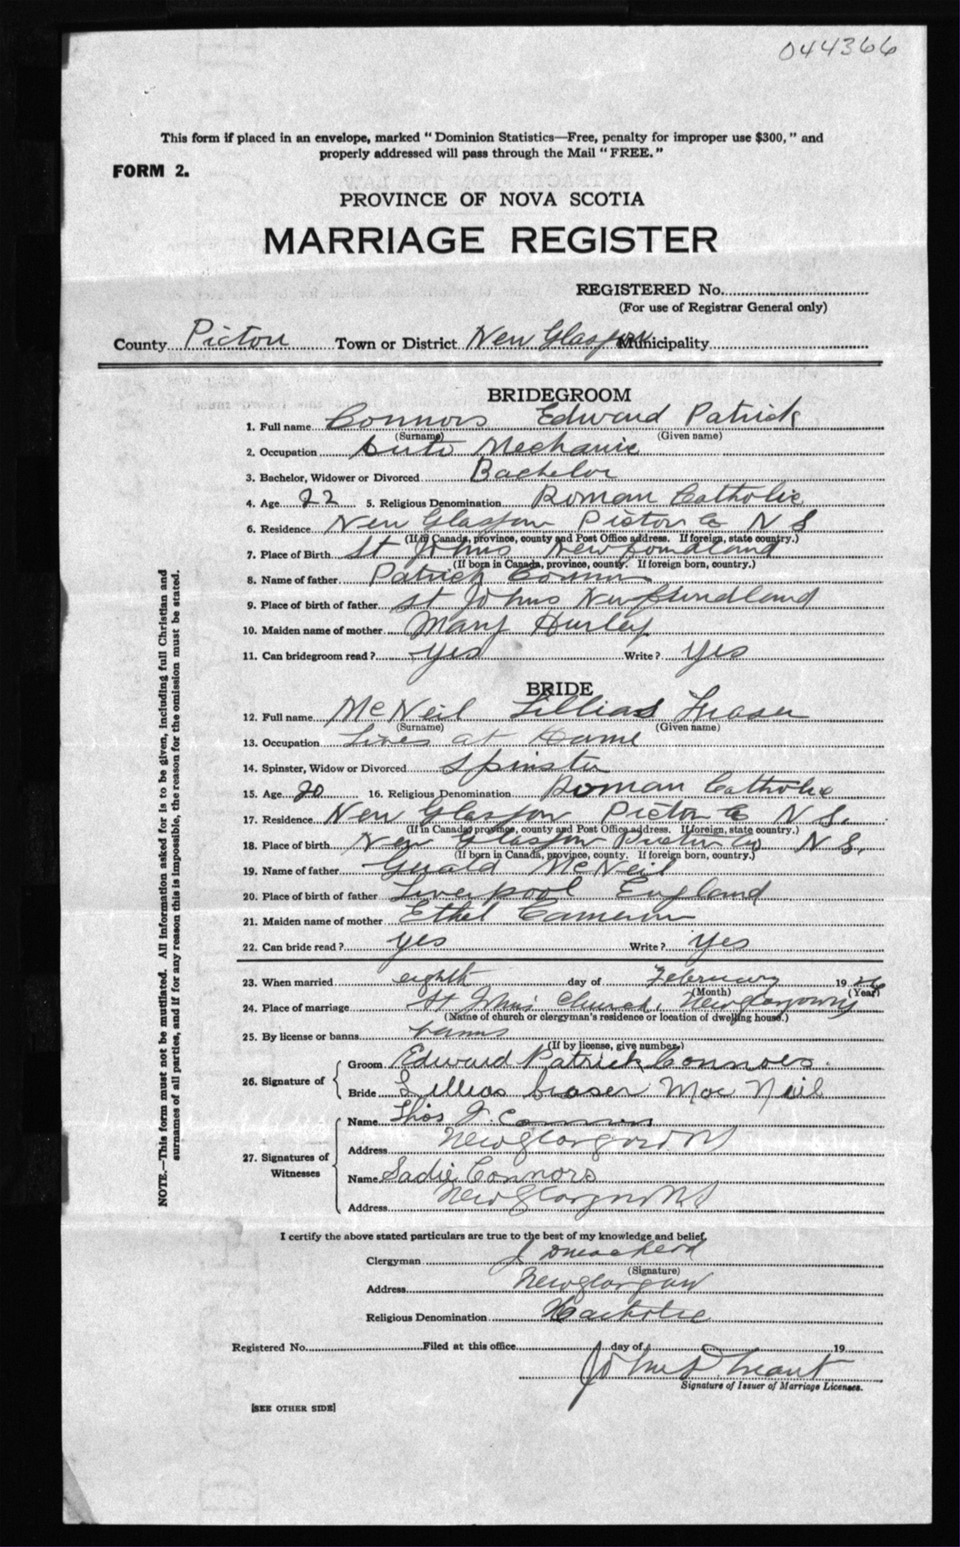 044366
This form if placed in an envelope, marked "Dominion Statistics—Free, penalty for improper use $300," and
properly addressed will pass through the Mail "FREE."
FORM 2.
PROVINCE OF NOVA SCOTIA
MARRIAGE REGISTER
REGISTERED No.
(For use of Registrar General only)
County Pictou Town or District New Glasgow Municipality
BRIDEGROOM
1. Full name Connors Edward Patrick
(Surname) (Given name)
2. Occupation Auto Mechanic
3. Bachelor, Widower or Divorced Bachelor
4. Age 22 5. Religious Denomination Roman Catholic
6. Residence New Glasgow Pictou Co N S
(If in Canada, province, county and Post Office address. If foreign, state country.)
7. Place of Birth St Johns Newfoundland
(If born in Canada, province, county. If foreign born, country.)
8. Name of father Patrick Connors
9. Place of birth of father St Johns Newfoundland
10. Maiden name of mother Mary Hurley
11. Can bridegroom read? yes Write? yes
BRIDE
12. Full name McNeil Lillias Fraser
(Surname) (Given name)
13. Occupation Lives at Home
14. Spinster, Widow or Divorced Spinster
15. Age 20 16. Religious Denomination Roman Catholic
17. Residence New Glasgow Pictou Co N S.
(If in Canada, province, county and Post Office address. If foreign, state country.)
18. Place of birth New Glasgow Pictou Co N S.
(If born in Canada, province, county. If foreign born, country.)
19. Name of father Gerald McNeil
20. Place of birth of father Liverpool England
21. Maiden name of mother Ethel Cameron
22. Can bride read? yes Write? yes
23. When married eighth day of February 1926
(Month) (Year)
24. Place of marriage St John's Church, New Glasgow
(Name of church or clergyman's residence or location of dwelling house.)
25. By license or banns banns
(If by license, give number.)
26. Signature of Groom Edward Patrick Connors.
Bride Lillias Fraser Mac Neil
27. Signatures of Witnesses Name Thos J. Connors
Address New Glasgow NS
Name Sadie Connors
Address New Glasgow NS
I certify the above stated particulars are true to the best of my knowledge and belief.
Clergyman J
(Signature)
Address New Glasgow
Religious Denomination Catholic
Registered No. Filed at this office day of 19
John D Grant
Signature of Issuer of Marriage Licenses.
[SEE OTHER SIDE]
NOTE.—This form must not be mutilated. All information asked for is to be given, including full Christian and
surnames of all parties, and if for any reason this is impossible, the reason for the omission must be stated.